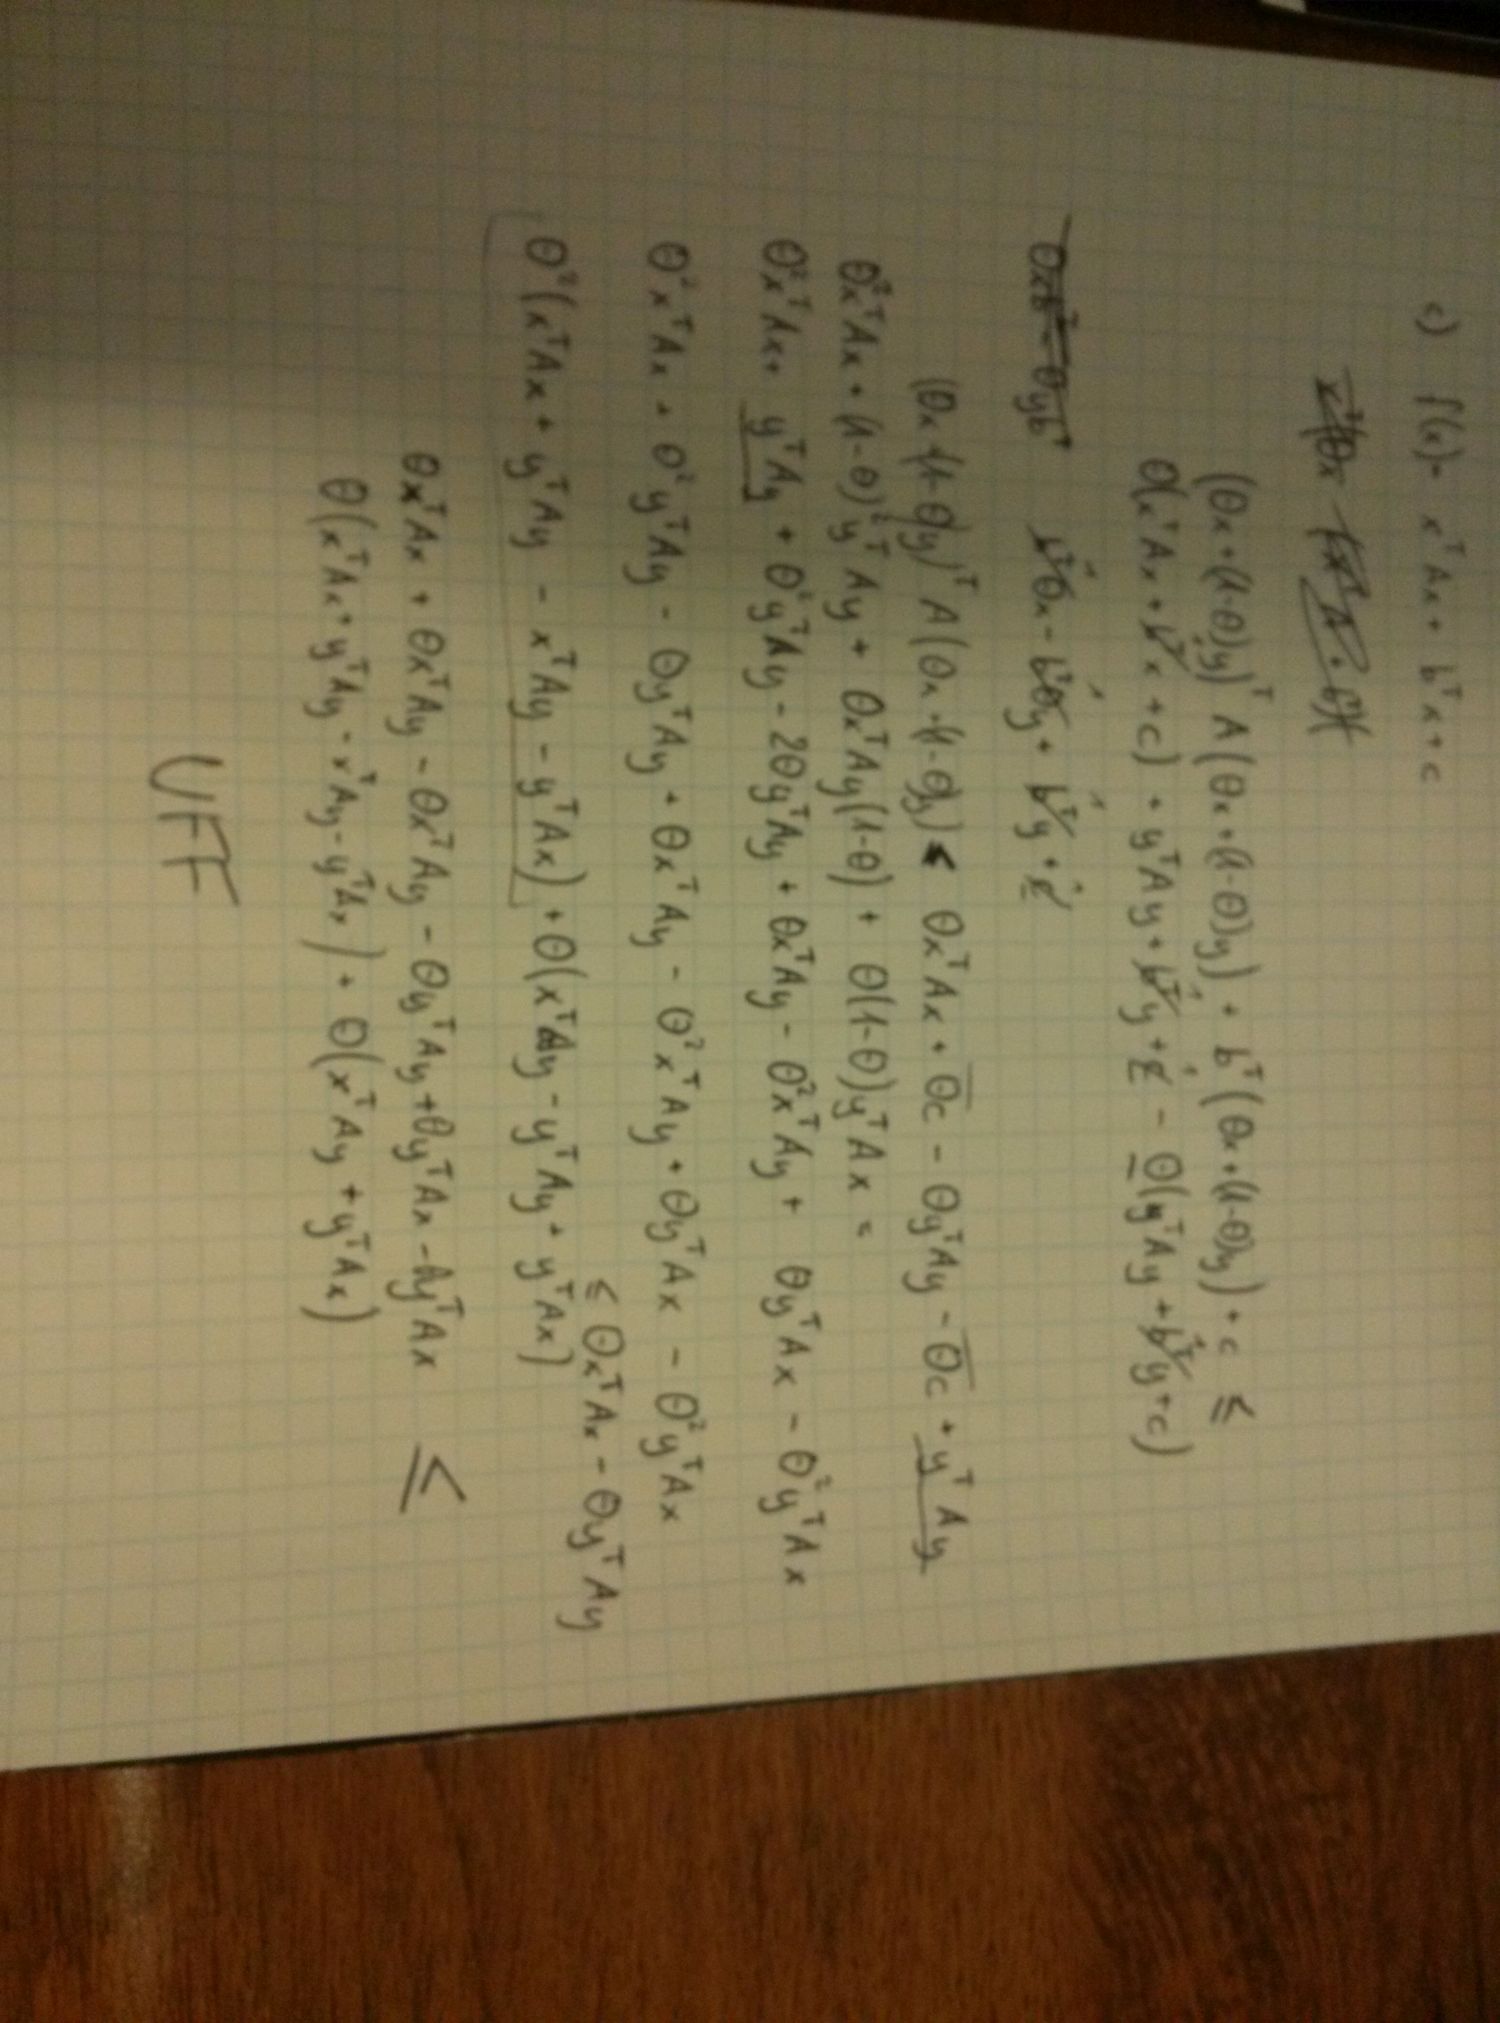 c) f(x) = xᵀAx + bᵀx + c
(θx + (1-θ)y)ᵀ A(θx + (1-θ)y) + bᵀ(θx + (1-θ)y) + c ≤
θ(xᵀAx + bᵀx + c) + yᵀAy + bᵀy + c - θ(yᵀAy + bᵀy + c)
θxbᵀ - θybᵀ bᵀθx - bᵀθy + bᵀy + c
(θx + (1-θ)y)ᵀ A(θx + (1-θ)y) ≤ θxᵀAx + θc - θyᵀAy - θc + yᵀAy
θ²xᵀAx + (1-θ)²yᵀAy + θxᵀAy(1-θ) + θ(1-θ)yᵀAx =
θ²xᵀAx + yᵀAy + θ²yᵀAy - 2θyᵀAy + θxᵀAy - θ²xᵀAy + θyᵀAx - θ²yᵀAx
θ²xᵀAx + θ²yᵀAy - θyᵀAy + θxᵀAy - θ²xᵀAy + θyᵀAx - θ²yᵀAx
≤ θxᵀAx - θyᵀAy
θ²(xᵀAx + yᵀAy - xᵀAy - yᵀAx) + θ(xᵀAy - yᵀAy + yᵀAx)
θxᵀAx + θxᵀAy - θxᵀAy - θyᵀAy + θyᵀAx - θyᵀAx ≤
θ(xᵀAx + yᵀAy - xᵀAy - yᵀAx) + θ(xᵀAy + yᵀAx)
UFF